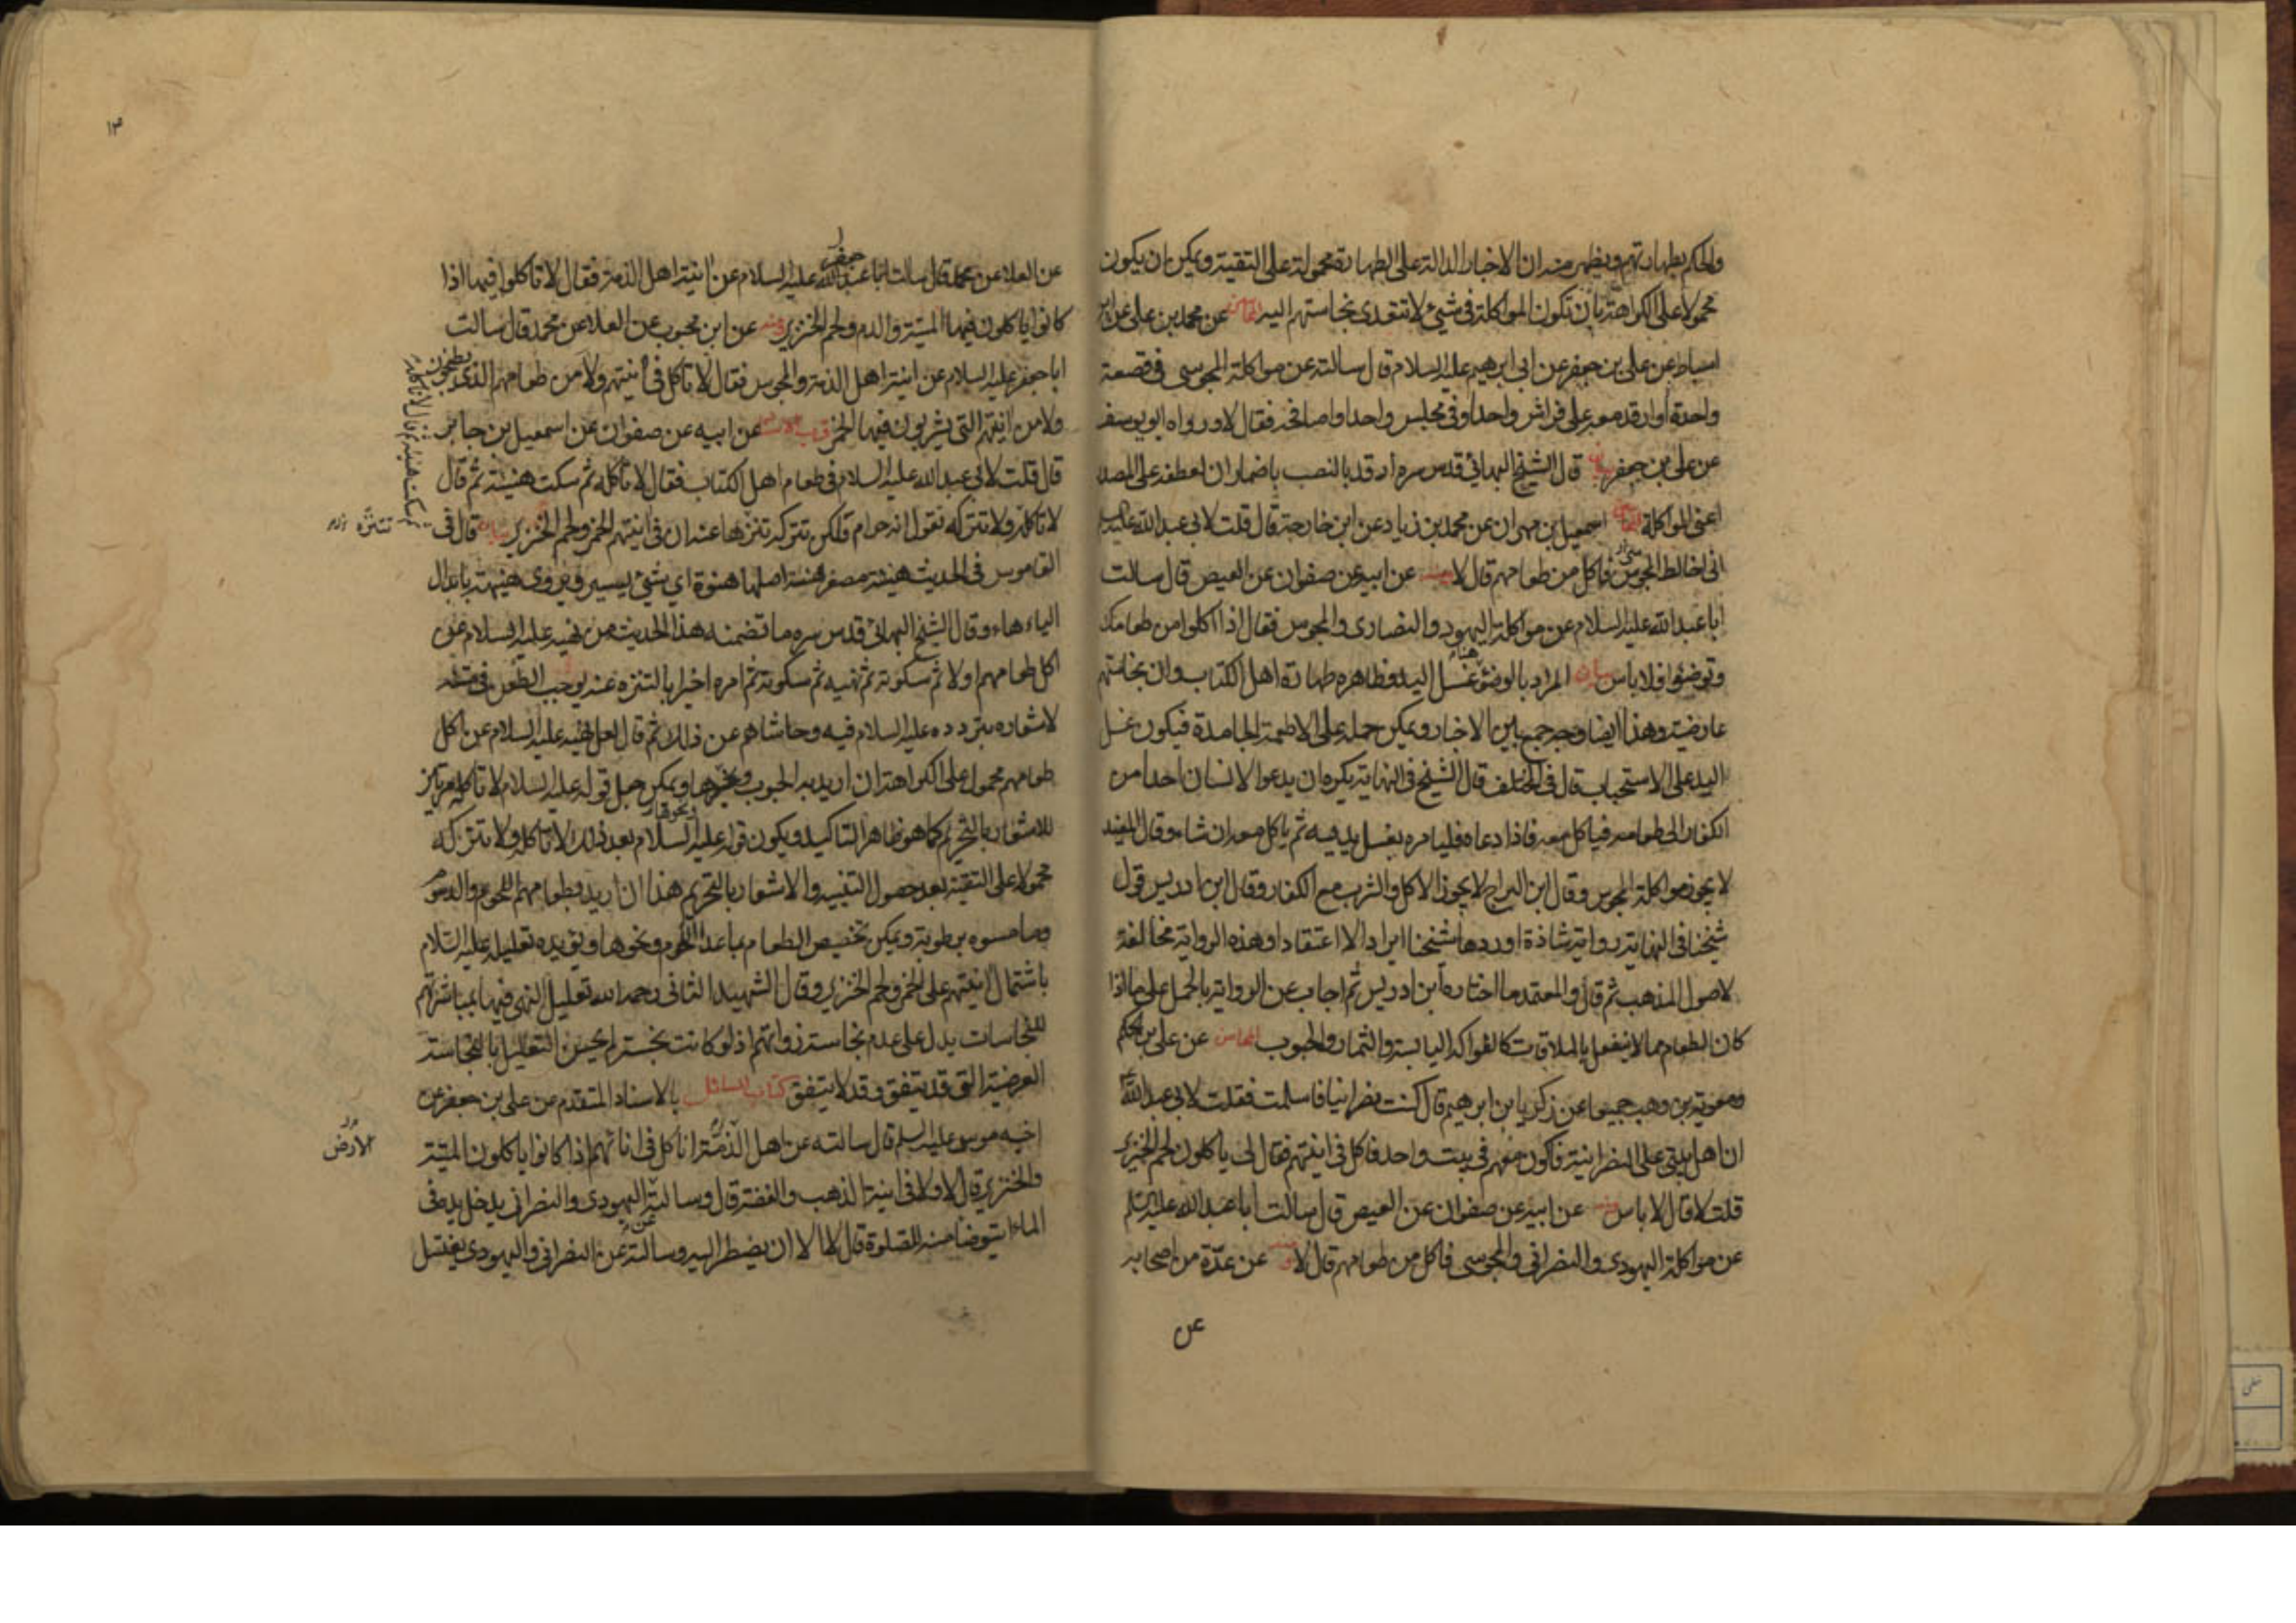 والحكم بطهارتهم ويظهر منه ان الاخبار الدالة على الطهارة محمولة على التقية ويمكن ان يكون
محمولا على الكراهة بان تكون المواكلة في شيئ لا تتعدى نجاستهم اليه المحاسن عن محمد بن علي عن ابن
اسباط عن علي بن جعفر عن ابي ابرهيم عليه السلام قال سالته عن مواكلة المجوسي في قصعة
واحدة او ارقد معه على فراش واحد او في مجلس واحد او اصافحه فقال لا ورواه ابو يوسف
عن علي بن جعفر بيان قال الشيخ البهائي قدس سره ارقد بالنصب باضمار ان لعطفه على المصدر
اعني المواكلة المحاسن اسمعيل بن مهران عن محمد بن زياد عن ابن خارجة قال قلت لابي عبد الله عليه السلام
اني اخالط المجوس فاكل من طعامهم قال لا ومنه عن ابيه عن صفوان عن العيص قال سالت
ابا عبد الله عليه السلام عن مواكلة اليهود والنصارى والمجوس فقال اذا اكلوا من طعامك
وتوضئوا فلا باس بيان المراد بالوضوء هنا غسل اليد وظاهره طهارة اهل الكتاب وان نجاستهم
عارضية وهذا ايضا وجه جمع بين الاخبار ويمكن حمله على الاطعمة الجامدة فيكون غسل
اليد على الاستحباب قال في المختلف قال الشيخ في النهاية يكره ان يدعوا الانسان احدا من
الكفار الى طعامه فياكل معه فاذا دعاه فليامره بغسل يديه ثم ياكل معه ان شاء وقال المفيد
لا يجوز مواكلة المجوس وقال ابن البراج لا يجوز الاكل والشرب مع الكفار وقال ابن ادريس قول
شيخنا في النهاية رواية شاذة اوردها شيخنا ايرادا لا اعتقادا وهذه الرواية مخالفة
لاصول المذهب ثم قال والمعتمد ما اختاره ابن ادريس ثم اجاب عن الرواية بالحمل على ما اذا
كان الطعام مما لا ينفعل بالملاقات كالفواكه اليابسة والثمار والحبوب المحاسن عن علي بن الحكم
ومعوية بن وهب جميعا عن زكريا بن ابرهيم قال كنت نصرانيا فاسلمت فقلت لابي عبد الله ع
ان اهل بيتي على النصرانية فاكون معهم في بيت واحد فاكل في انيتهم فقال لي ياكلون لحم الخنزير
قلت لا قال لا باس ومنه عن ابيه عن صفوان عن العيص قال سالت ابا عبد الله عليه السلم
عن مواكلة اليهودي والنصراني والمجوسي فاكل من طعامهم قال لا ومنه عن عدة من اصحابه
عن
١٣
جعفر
عن العلا عن محمد قال سالت ابا عبد الله عليه السلام عن انية اهل الذمة فقال لا تاكلوا فيها اذا
كانوا ياكلون فيها الميتة والدم ولحم الخنزير ومنه عن ابن محبوب عن العلا عن محمد قال سالت
ابا جعفر عليه السلام عن انية اهل الذمة والمجوس فقال لا تاكل في انيتهم ولا من طعامهم الذي يطبخون
ولا من انيتهم التي يشربون فيها الخمر قرب الاسناد عن ابيه عن صفوان عن اسمعيل بن جابر
قال قلت لابي عبد الله عليه السلام في طعام اهل الكتاب فقال لا تاكله ثم سكت هنيئة ثم قال
ثم سكت هنيئة ثم قال لا تاكله
لا تاكله ولا تتركه تقول انه حرام ولكن تتركه تنزها عنه ان في انيتهم الخمر ولحم الخنزير بيان قال في
تتنزه
القاموس في الحديث هنية مصغر هنة اصلها هنوة اي شيئ يسير ويروى هنيهة بابدال
الياء هاء وقال الشيخ البهائي قدس سره ما تضمنه هذا الحديث من نهيه عليه السلام عن
اكل طعامهم اولا ثم سكوته ثم نهيه ثم سكوته ثم امره اخيرا بالتنزه عنه يوجب الطعن في متنه
لاشعاره بتردده عليه السلام فيه وحاشاهم عن ذلك ثم قال لعل نهيه عليه السلام عن اكل
طعامهم محمول على الكراهة ان اريد به الحبوب ونحوها ويمكن جعل قوله عليه السلام لا تاكله مرتين
للاشعار بالتحريم كما هو ظاهر التاكيد ويكون قوله عليه السلام بعد ذلك لا تاكله ولا تتركه
محمولا على التقية بعد حصول التنبيه والاشعار بالتحريم هذا ان اريد بطعامهم اللحوم والدسوم
وما مسوه برطوبة ويمكن تخصيص الطعام بما عدا اللحوم ونحوها ويؤيده تعليله عليه السلام
باشتمال انيتهم على الخمر ولحم الخنزير وقال الشهيد الثاني رحمه الله تعليل النهي فيها بمباشرتهم
للنجاسات يدل على عدم نجاسة ذواتهم اذ لو كانت نجسة لم يحسن التعليل بالنجاسة
العرضية التي قد تتفق وقد لا يتفق كتاب المسائل بالاسناد المتقدم عن علي بن جعفر عن
اخيه موسى عليه السلم قال سالته عن اهل الذمة اناكل في انائهم اذا كانوا ياكلون الميتة
الارض
والخنزير قال لا ولا في انية الذهب والفضة قال وسالته اليهودي والنصراني يدخل يده في
الماء ايتوضا منه للصلوة قال لا الا ان يضطر اليه وسالته عن النصراني واليهودي يغتسل